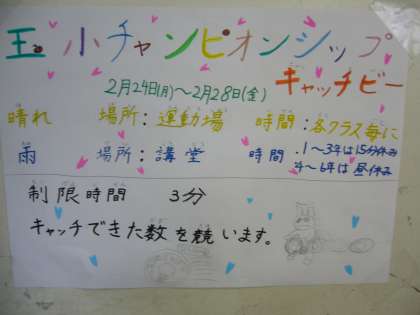 玉小チャンピオンシップ
キャッチビー
2月24日(月)～2月28日(金)
晴れ 場所：運動場 時間：各クラス毎に
雨 場所：講堂 時間・1～3年は15分休み
4～6年は昼休み
制限時間 3分
キャッチできた数を競います。